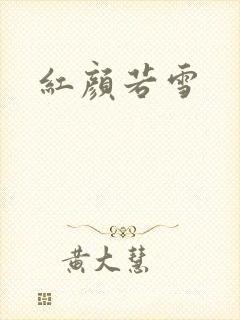 紅顏若雪
黃大慧